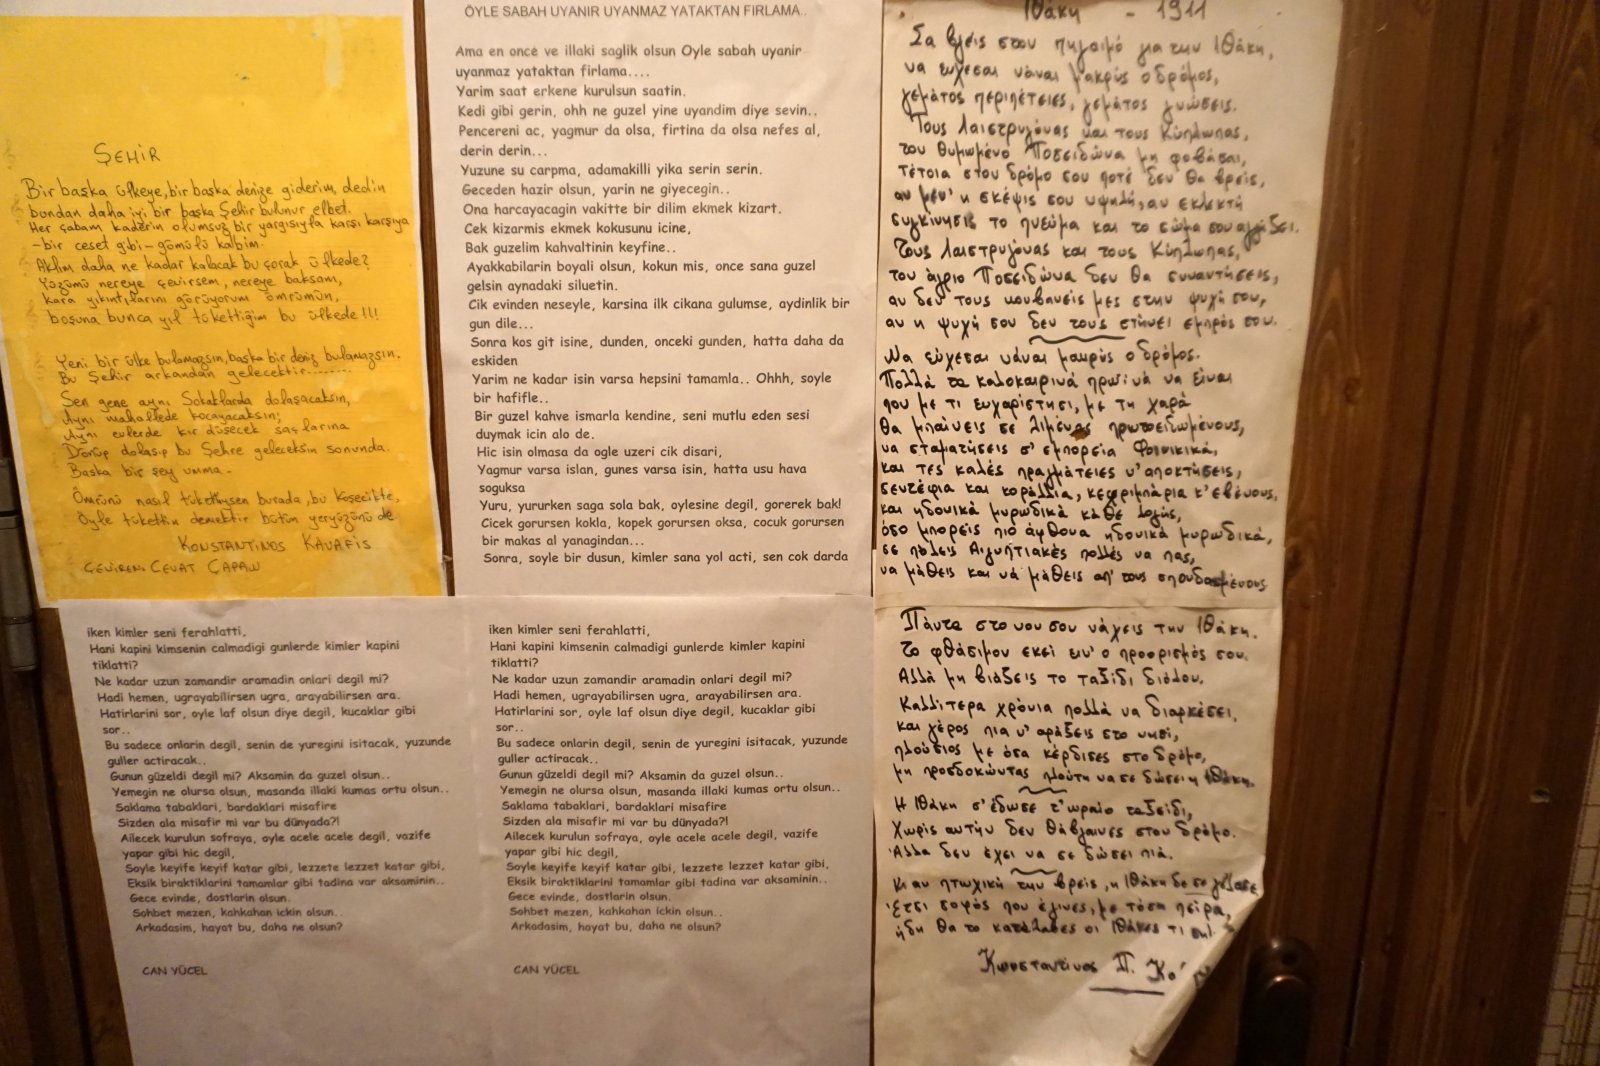 ŞEHİR
Bir başka ülkeye, bir başka denize giderim, dedin
bundan daha iyi bir başka şehir bulunur elbet.
Her çabam kaderin olumsuz bir yargısıyla karşı karşıya
-bir ceset gibi- gömülü kalbim.
Aklım daha ne kadar kalacak bu çorak ülkede?
Yüzümü nereye çevirsem, nereye baksam,
kara yıkıntılarını görüyorum ömrümün,
boşuna bunca yıl tükettiğim bu ülkede!!!
Yeni bir ülke bulamazsın, başka bir deniz bulamazsın.
Bu şehir arkandan gelecektir........
Sen gene aynı Sokaklarda dolaşacaksın,
Aynı mahallede kocayacaksın;
Aynı evlerde kır düşecek saçlarına
Dönüp dolaşıp bu Şehre geleceksin sonunda.
Başka bir şey umma-
Ömrünü nasıl tükettiysen burada, bu köşecikte,
Öyle tükettin demektir bütün yeryüzünü de
KONSTANTINOS KAVAFİS
ÇEVİREN: CEVAT ÇAPAN
ÖYLE SABAH UYANIR UYANMAZ YATAKTAN FIRLAMA..
Ama en once ve illaki saglik olsun Oyle sabah uyanir
uyanmaz yataktan firlama....
Yarim saat erkene kurulsun saatin.
Kedi gibi gerin, ohh ne guzel yine uyandim diye sevin..
Pencereni ac, yagmur da olsa, firtina da olsa nefes al,
derin derin...
Yuzune su carpma, adamakilli yika serin serin.
Geceden hazir olsun, yarin ne giyecegin..
Ona harcayacagin vakitte bir dilim ekmek kizart.
Cek kizarmis ekmek kokusunu icine,
Bak guzelim kahvaltinin keyfine..
Ayakkabilarin boyali olsun, kokun mis, once sana guzel
gelsin aynadaki siluetin.
Cik evinden neseyle, karsina ilk cikana gulumse, aydinlik bir
gun dile...
Sonra kos git isine, dunden, onceki gunden, hatta daha da
eskiden
Yarim ne kadar isin varsa hepsini tamamla.. Ohhh, soyle
bir hafifle..
Bir guzel kahve ismarla kendine, seni mutlu eden sesi
duymak icin alo de.
Hic isin olmasa da ogle uzeri cik disari,
Yagmur varsa islan, gunes varsa isin, hatta usu hava
soguksa
Yuru, yururken saga sola bak, oylesine degil, gorerek bak!
Cicek gorursen kokla, kopek gorursen oksa, cocuk gorursen
bir makas al yanagindan...
Sonra, soyle bir dusun, kimler sana yol acti, sen cok darda
iken kimler seni ferahlatti,
Hani kapini kimsenin calmadigi gunlerde kimler kapini
tiklatti?
Ne kadar uzun zamandir aramadin onlari degil mi?
Hadi hemen, ugrayabilirsen ugra, arayabilirsen ara.
Hatirlarini sor, oyle laf olsun diye degil, kucaklar gibi
sor..
Bu sadece onlarin degil, senin de yuregini isitacak, yuzunde
guller actiracak..
Gunun güzeldi degil mi? Aksamin da guzel olsun..
Yemegin ne olursa olsun, masanda illaki kumas ortu olsun..
Saklama tabaklari, bardaklari misafire
Sizden ala misafir mi var bu dünyada?!
Ailecek kurulun sofraya, oyle acele acele degil, vazife
yapar gibi hic degil,
Soyle keyife keyif katar gibi, lezzete lezzet katar gibi,
Eksik biraktiklarini tamamlar gibi tadina var aksaminin..
Gece evinde, dostlarin olsun.
Sohbet mezen, kahkahan ickin olsun..
Arkadasim, hayat bu, daha ne olsun?
CAN YÜCEL
iken kimler seni ferahlatti,
Hani kapini kimsenin calmadigi gunlerde kimler kapini
tiklatti?
Ne kadar uzun zamandir aramadin onlari degil mi?
Hadi hemen, ugrayabilirsen ugra, arayabilirsen ara.
Hatirlarini sor, oyle laf olsun diye degil, kucaklar gibi
sor..
Bu sadece onlarin degil, senin de yuregini isitacak, yuzunde
guller actiracak..
Gunun güzeldi degil mi? Aksamin da guzel olsun..
Yemegin ne olursa olsun, masanda illaki kumas ortu olsun..
Saklama tabaklari, bardaklari misafire
Sizden ala misafir mi var bu dünyada?!
Ailecek kurulun sofraya, oyle acele acele degil, vazife
yapar gibi hic degil,
Soyle keyife keyif katar gibi, lezzete lezzet katar gibi,
Eksik biraktiklarini tamamlar gibi tadina var aksaminin..
Gece evinde, dostlarin olsun.
Sohbet mezen, kahkahan ickin olsun..
Arkadasim, hayat bu, daha ne olsun?
CAN YÜCEL
Ιθάκη - 1911
Σα βγεις στον πηγαιμό για την Ιθάκη,
να εύχεσαι νάναι μακρύς ο δρόμος,
γεμάτος περιπέτειες, γεμάτος γνώσεις.
Τους Λαιστρυγόνας και τους Κύκλωπας,
τον θυμωμένο Ποσειδώνα μη φοβάσαι,
τέτοια στον δρόμο σου ποτέ δεν θα βρεις,
αν μέν' η σκέψις σου υψηλή, αν εκλεκτή
συγκίνησις το πνεύμα και το σώμα σου αγγίζει.
Τους Λαιστρυγόνας και τους Κύκλωπας,
τον άγριο Ποσειδώνα δεν θα συναντήσεις,
αν δεν τους κουβανείς μες στην ψυχή σου,
αν η ψυχή σου δεν τους στήνει εμπρός σου.
Να εύχεσαι νάναι μακρύς ο δρόμος.
Πολλά τα καλοκαιρινά πρωϊνά να είναι
που με τι ευχαρίστησι, με τη χαρά
θα μπαίνεις σε λιμένας πρωτοειδωμένους,
να σταματήσεις σ' εμπορεία Φοινικικά,
και τες καλές πραγμάτειες ν' αποκτήσεις,
σεντέφια και κοράλλια, κεχριμπάρια κ' έβενους,
και ηδονικά μυρωδικά κάθε λογής,
όσο μπορείς πιό άφθονα ηδονικά μυρωδικά,
σε πόλεις Αιγυπτιακές πολλές να πας,
να μάθεις και νά μάθεις απ' τους σπουδασμένους
Πάντα στο νου σου νάχεις την Ιθάκη.
Το φθάσιμον εκεί ειν' ο προορισμός σου.
Αλλά μη βιάζεις το ταξίδι διόλου.
Καλλίτερα χρόνια πολλά να διαρκέσει,
και γέρος πια ν' αράξεις στο νησί,
πλούσιος με όσα κέρδισες στο δρόμο,
μη προσδοκώντας πλούτη να σε δώσει η Ιθάκη.
Η Ιθάκη σ' έδωσε τ' ωραίο ταξείδι,
Χωρίς αυτήν δεν θάβγαινες στον δρόμο.
Αλλα δεν έχει να σε δώσει πιά.
Κι αν πτωχική την βρεις, η Ιθάκη δε σε γέλασε
έτσι σοφός που έγινες, με τόση πείρα,
ήδη θα το κατάλαβες οι Ιθάκες τι
Κωνσταντίνος Π.